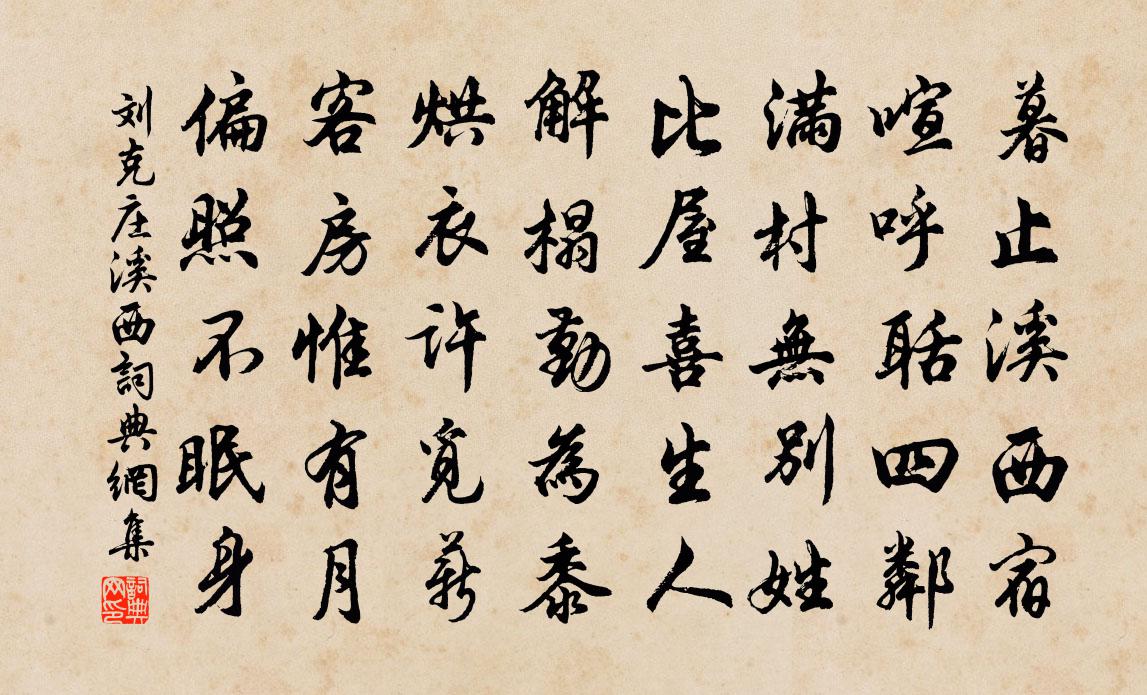 暮止溪西宿
喧呼聒四鄰
滿村無別姓
比屋喜生人
解榻勤為黍
烘衣許覓薪
客房惟有月
偏照不眠身
刘克庄溪西詞典網集
詞典
网印